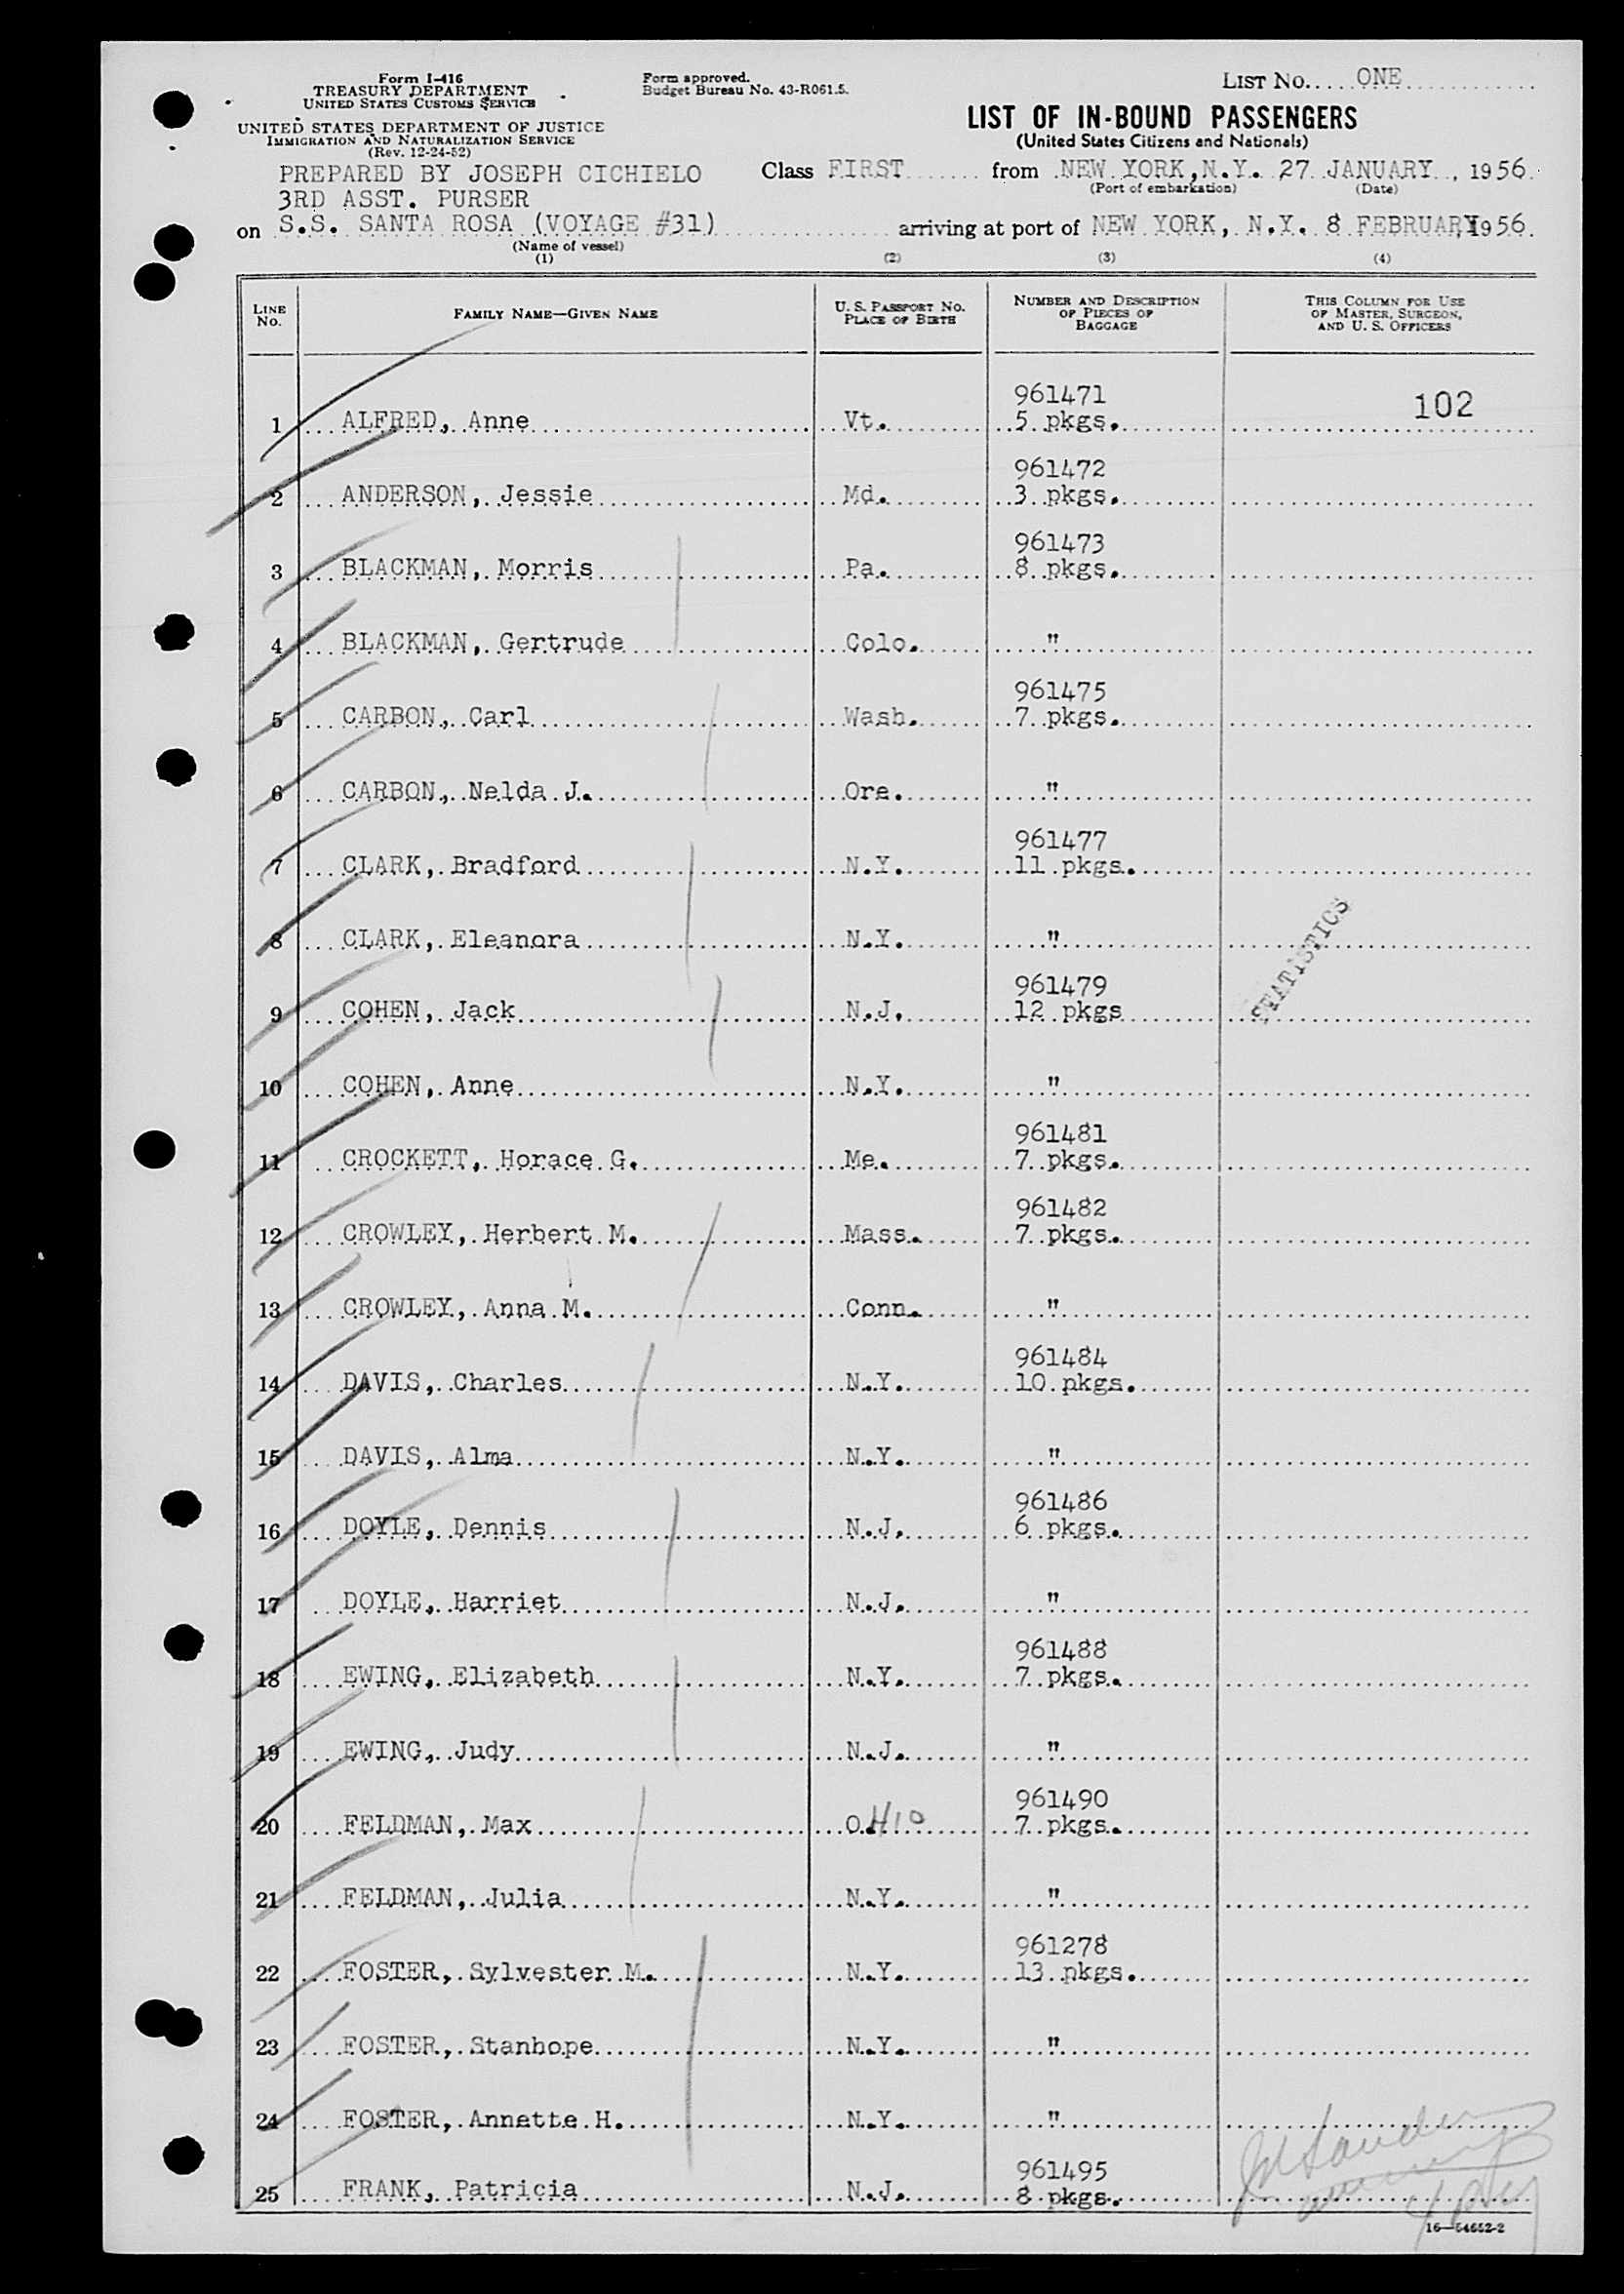 Form I-416
TREASURY DEPARTMENT
UNITED STATES CUSTOMS SERVICE
UNITED STATES DEPARTMENT OF JUSTICE
IMMIGRATION AND NATURALIZATION SERVICE
(Rev. 12-24-52)
Form approved.
Budget Bureau No. 43-R061.5.
LIST No. ONE
LIST OF IN-BOUND PASSENGERS
(United States Citizens and Nationals)
PREPARED BY JOSEPH CICHIELO
3RD ASST. PURSER
Class FIRST from NEW YORK, N.Y. 27 JANUARY, 1956
(Port of embarkation) (Date)
on S.S. SANTA ROSA (VOYAGE #31) arriving at port of NEW YORK, N.Y. 8 FEBRUARY 1956
(Name of vessel)
(1) (2) (3) (4)
LINE No. FAMILY NAME—GIVEN NAME U. S. PASSPORT No. PLACE OF BIRTH NUMBER AND DESCRIPTION OF PIECES OF BAGGAGE THIS COLUMN FOR USE OF MASTER, SURGEON, AND U. S. OFFICERS
961471 102
1 ALFRED, Anne Vt. 5 pkgs.
961472
2 ANDERSON, Jessie Md. 3 pkgs.
961473
3 BLACKMAN, Morris Pa. 8 pkgs.
4 BLACKMAN, Gertrude Colo. "
961475
5 CARBON, Carl Wash. 7 pkgs.
6 CARBON, Nelda J. Ore. "
961477
7 CLARK, Bradford N.Y. 11 pkgs.
8 CLARK, Eleanora N.Y. "
STATISTICS
961479
9 COHEN, Jack N.J. 12 pkgs
10 COHEN, Anne N.Y. "
961481
11 CROCKETT, Horace G. Me. 7 pkgs.
961482
12 CROWLEY, Herbert M. Mass. 7 pkgs.
13 CROWLEY, Anna M. Conn. "
961484
14 DAVIS, Charles N.Y. 10 pkgs.
15 DAVIS, Alma N.Y. "
961486
16 DOYLE, Dennis N.J. 6 pkgs.
17 DOYLE, Harriet N.J. "
961488
18 EWING, Elizabeth N.Y. 7 pkgs.
19 EWING, Judy N.J. "
961490
20 FELDMAN, Max OHIO 7 pkgs.
21 FELDMAN, Julia N.Y. "
961278
22 FOSTER, Sylvester M. N.Y. 13 pkgs.
23 FOSTER, Stanhope N.Y. "
24 FOSTER, Annette H. N.Y. "
961495
25 FRANK, Patricia N.J. 8 pkgs.
16—54652-2